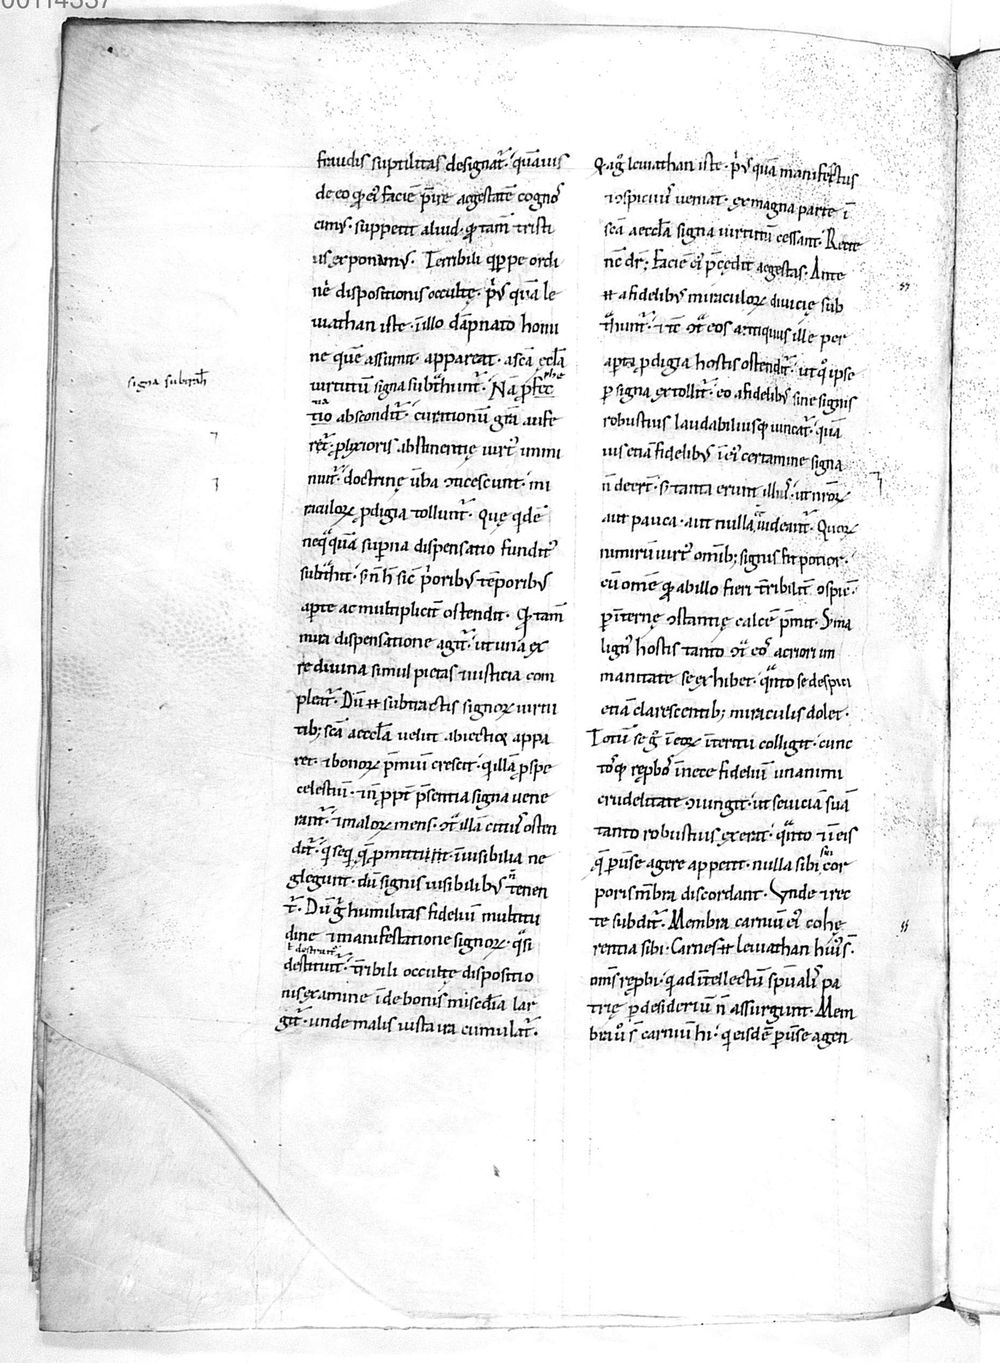 00114337
fraudis suptilitas designat̄. quāuis
de eo qd̄ ei᷒ faciē p̄ire aegestatē cogno
cim᷒. suppetit aliud. qd̄ tam̄ tristi
us exponam᷒. Terribili q̄ppe ordi
nē dispositionis occultę. pri᷒ quā le
uiathan iste. ī illo dāpnato homi
ne quē assumit appareat. a scā ęcl̄a
uirtutū signa subt̄hunt̄. Nā ꝓfec
phe
signa subtrah̄
tia
tio abscondit̄. curationū gr̄a aufe
ret̄. ꝓlixioris abstinentię uirt᷒ immi
nuit̄. doctrinę ūba ↄticescunt. mi
raculoꝝ ꝓdigia tollunt̄. Quę qdē
neq̄quā sup̄na dispensatio fundit᷒
subt̄hit. s; n̄ h̄ sic̄ p̄orib᷒ tēporib᷒
apte ac multiplicit̄ ostendit. Qd̄ tam̄
mira dispensatione agit̄. ut una ex
re diuina simul pietas ⁊ iusticia com
pleat̄. Dū ħ subtractis signoꝝ uirtu
tib; scā aeccl̄a uelut abiectioꝝ appa
ret. ⁊ bonoꝝ p̄miū crescit. q illā ꝓ spe
celestiū. ⁊ n̄ ꝓpt̄ p̄sentia signa uene
rant̄. ⁊ maloꝝ mens. ↄt̄ illā citi᷒ osten
dit̄. q̄ seq q̄ ꝓmittunt̄. īuisibilia ne
glegunt. dū signis uisibilib᷒ n̄ tenen
t̄. Dū ḡ humilitas fideliū multitu
dine ⁊ manifestatione signoꝝ. q̄si
ł destruit̄
destituit̄. t̄ribili occultę dispositio
nis examine īde bonis misēdia lar
git̄. unde malis iusta ira cumulat̄.
Q. a ḡ leuiathan iste. pri᷒ quā manifestus
ↄspicuus ueniat. ex magna parte ī
scā aeccl̄a signa uirtutū cessant. Recte
nc̄ dr̄; Faciē ei᷒ p̄cędit aegestas. Ante
ħ a fidelib᷒ miraculoꝝ diuicię sub
t̄hunt̄. ⁊ tc̄ ↄt̄ eos antiquus ille per
apta ꝓdigia hostis ostendit̄. ut qo ipse
p signa extollit̄. eo a fidelib᷒ sine signis
robustius laudabiliusq; uincat̄. quā
uis etiā fidelib᷒ ī ei᷒ certamine signa
n̄ deert̄. s; tanta erunt illi᷒. ut nr̄oꝝ
aut pauca. aut nulla uideant̄. Quoꝝ
nimirū uirt᷒ omib; signis fit potior.
cū omē qd̄ ab illo fieri t̄ribilit̄ ↄspic̄.
p īternę ↄstantię calcē p̄mit. S; ma
lign᷒ hostis tanto ↄt̄ eos acriori im
manitate se exhibet. q̄nto se despici
etiā clarescentib; miraculis dolet.
Totū se ḡ ī eoꝝ īteritu colligit. cunc
tosq; rep̄bos ī nece fideliū unanimi
crudelitate ↄiungit. ut seuiciā suā
tanto robustius exerat. q̄nto ⁊ n̄ eis
q̄ pūse agere appetit. nulla sibi sui cor
poris m̄bra discordant. Vnde ⁊ rec
te subdit̄. Membra carniū ei᷒ cohę
rentia sibi. Carnes ħ leuiathan hui᷒ s̄.
oms rep̄bi. q ad ītellectū spūalis pa
trię p desideriū n̄ assurgunt. Mem
bra ū s̄ carniū hi. q eisdē pūse agen